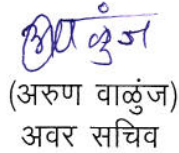 (अरुण वाळुंज)
अवर सचिव